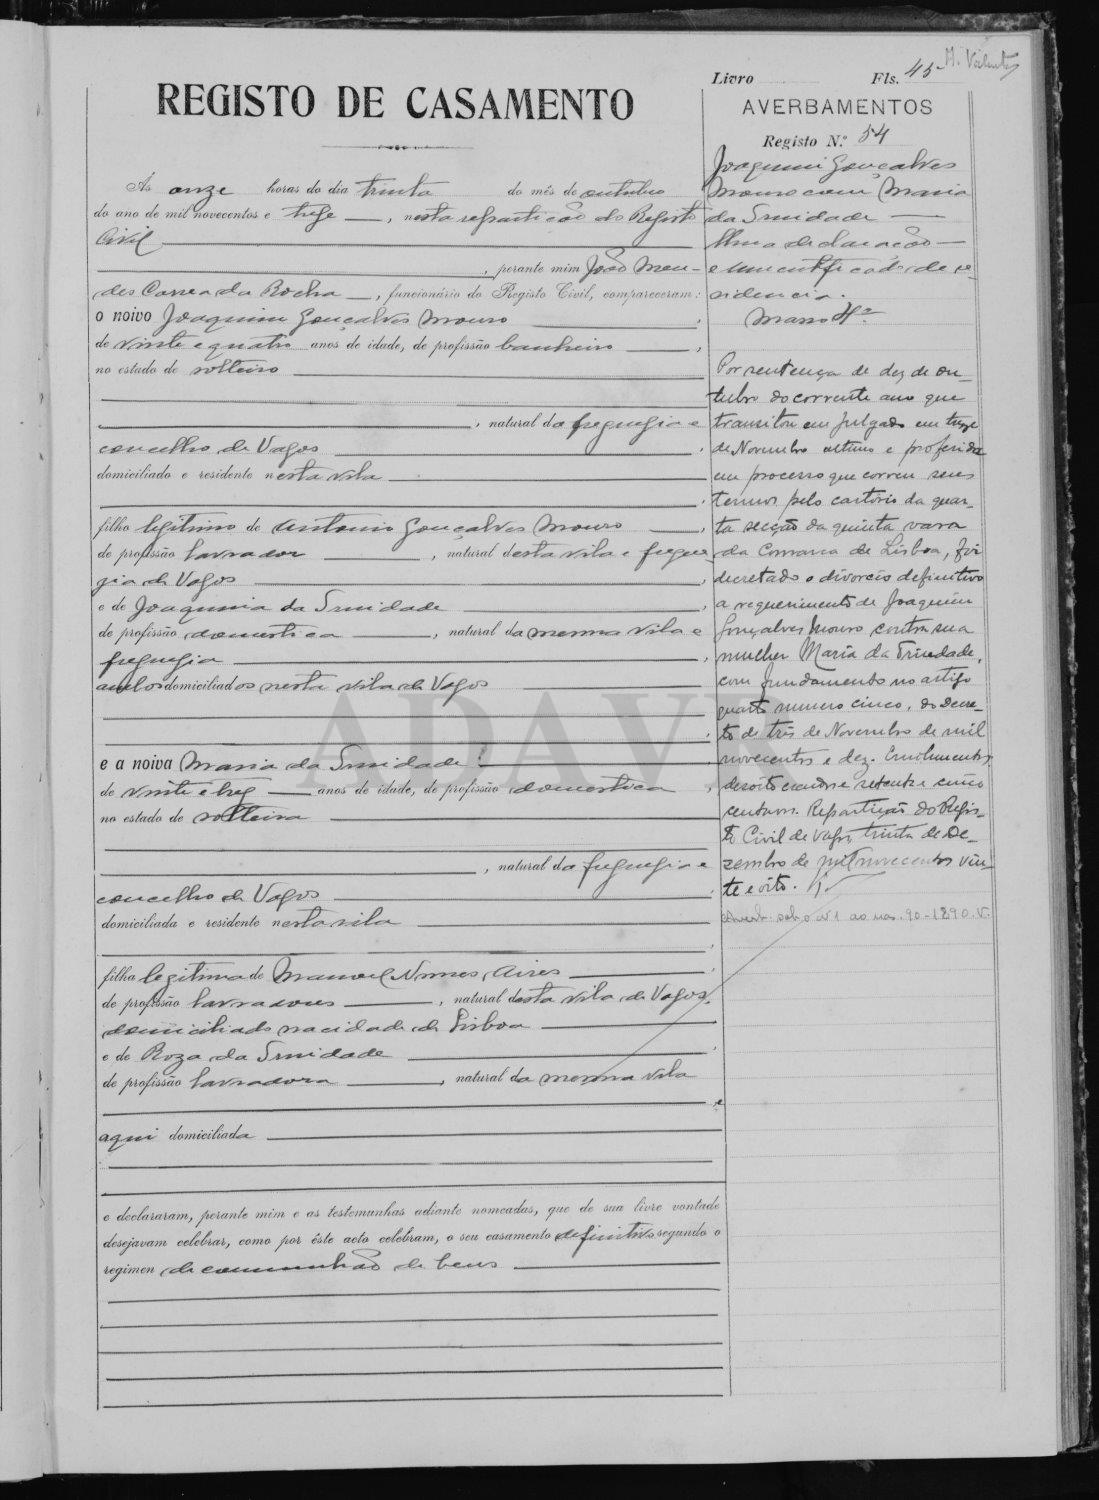 Livro Fls. 45
REGISTO DE CASAMENTO
Ás onze horas do dia trinta do mês de outubro
do ano de mil novecentos e treze, nesta repartição do Registo
Civil
, perante mim João Men-
des Correa da Rocha, funcionário do Registo Civil, compareceram:
o noivo Joaquim Gonçalves Mouro,
de vinte e quatro anos de idade, de profissão banheiro,
no estado de solteiro
, natural da freguesia e
concelho de Vagos,
domiciliado e residente nesta vila
filho legitimo de Antonio Gonçalves Mouro,
de profissão lavrador, natural desta vila e fregue
zia de Vagos,
e de Joaquina da Trindade,
de profissão domestica, natural da mesma vila e
freguezia,
ambos domiciliados nesta vila de Vagos
e a noiva Maria da Trindade,
de vinte e trez anos de idade, de profissão domestica,
no estado de solteira
, natural da freguezia e
concelho de Vagos,
domiciliada e residente nesta vila
filha legitima de Manoel Nunes Aires,
de profissão lavradores, natural desta vila de Vagos,
domiciliado na cidade de Lisboa
e de Roza da Trindade,
de profissão lavradora, natural da mesma vila
, e
aqui domiciliada
e declararam, perante mim e as testemunhas adiante nomeadas, que de sua livre vontade
desejavam celebrar, como por êste acto celebram, o seu casamento definitivo segundo o
regimen de communhão de bens
AVERBAMENTOS
Registo N.º 54
Joaquim Gonçalves
Mouro com Maria
da Trindade
Uma declaração
e um certificado de re-
sidencia.
Masso Nº
Por sentença de dez de ou-
tubro do corrente ano que
transitou em julgado em treze
de Novembro ultimo e proferida
em processo que correu seus
termos pelo cartório da quar-
ta secção da quinta vara
da Comarca de Lisboa, foi
decretado o divorcio definitivo
a requerimento de Joaquim
Gonçalves Mouro contra sua
mulher Maria da Trindade,
com fundamento no artigo
quarto numero cinco, do Decre-
to de três de Novembro de mil
novecentos e dez. Emolumentos
dezoito escudos e setenta e cinco
centavos. Repartição do Regis-
to Civil de Vagos, trinta de De-
zembro de mil novecentos vin-
te e oito.
ADAVR